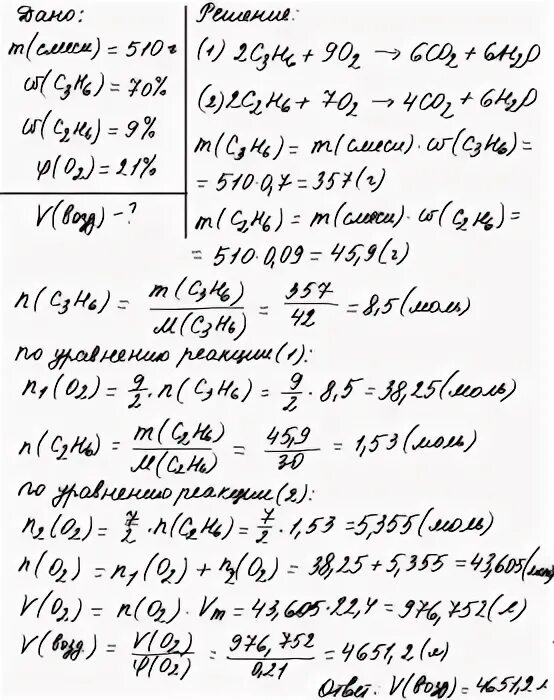 Дано:
m(смеси) = 510 г
ω(C₃H₆) = 70%
ω(C₂H₆) = 9%
φ(O₂) = 21%
V(возд) - ?
Решение:
(1) 2C₃H₆ + 9O₂ → 6CO₂ + 6H₂O
(2) 2C₂H₆ + 7O₂ → 4CO₂ + 6H₂O
m(C₃H₆) = m(смеси) · ω(C₃H₆) =
= 510 · 0,7 = 357 (г)
m(C₂H₆) = m(смеси) · ω(C₂H₆) =
= 510 · 0,09 = 45,9 (г)
n(C₃H₆) = m(C₃H₆)/M(C₃H₆) = 357/42 = 8,5 (моль)
по уравнению реакции (1):
n₁(O₂) = 9/2 · n(C₃H₆) = 9/2 · 8,5 = 38,25 (моль)
n(C₂H₆) = m(C₂H₆)/M(C₂H₆) = 45,9/30 = 1,53 (моль)
по уравнению реакции (2):
n₂(O₂) = 7/2 · n(C₂H₆) = 7/2 · 1,53 = 5,355 (моль)
n(O₂) = n₁(O₂) + n₂(O₂) = 38,25 + 5,355 = 43,605 (моль)
V(O₂) = n(O₂) · Vm = 43,605 · 22,4 = 976,752 (л)
V(возд) = V(O₂)/φ(O₂) = 976,752/0,21 = 4651,2 (л)
Ответ: V(возд) = 4651,2 л